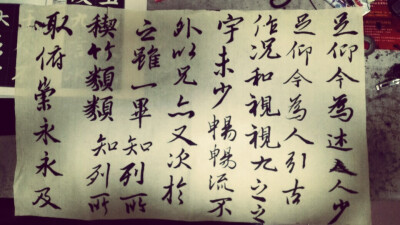 足仰今為述人少
足仰今為人引古
作況和視視九之之
宇未少暢暢流不
外以兄亦又次於
之雖一畢知列所
稧竹類類知列所
取俯崇永永及